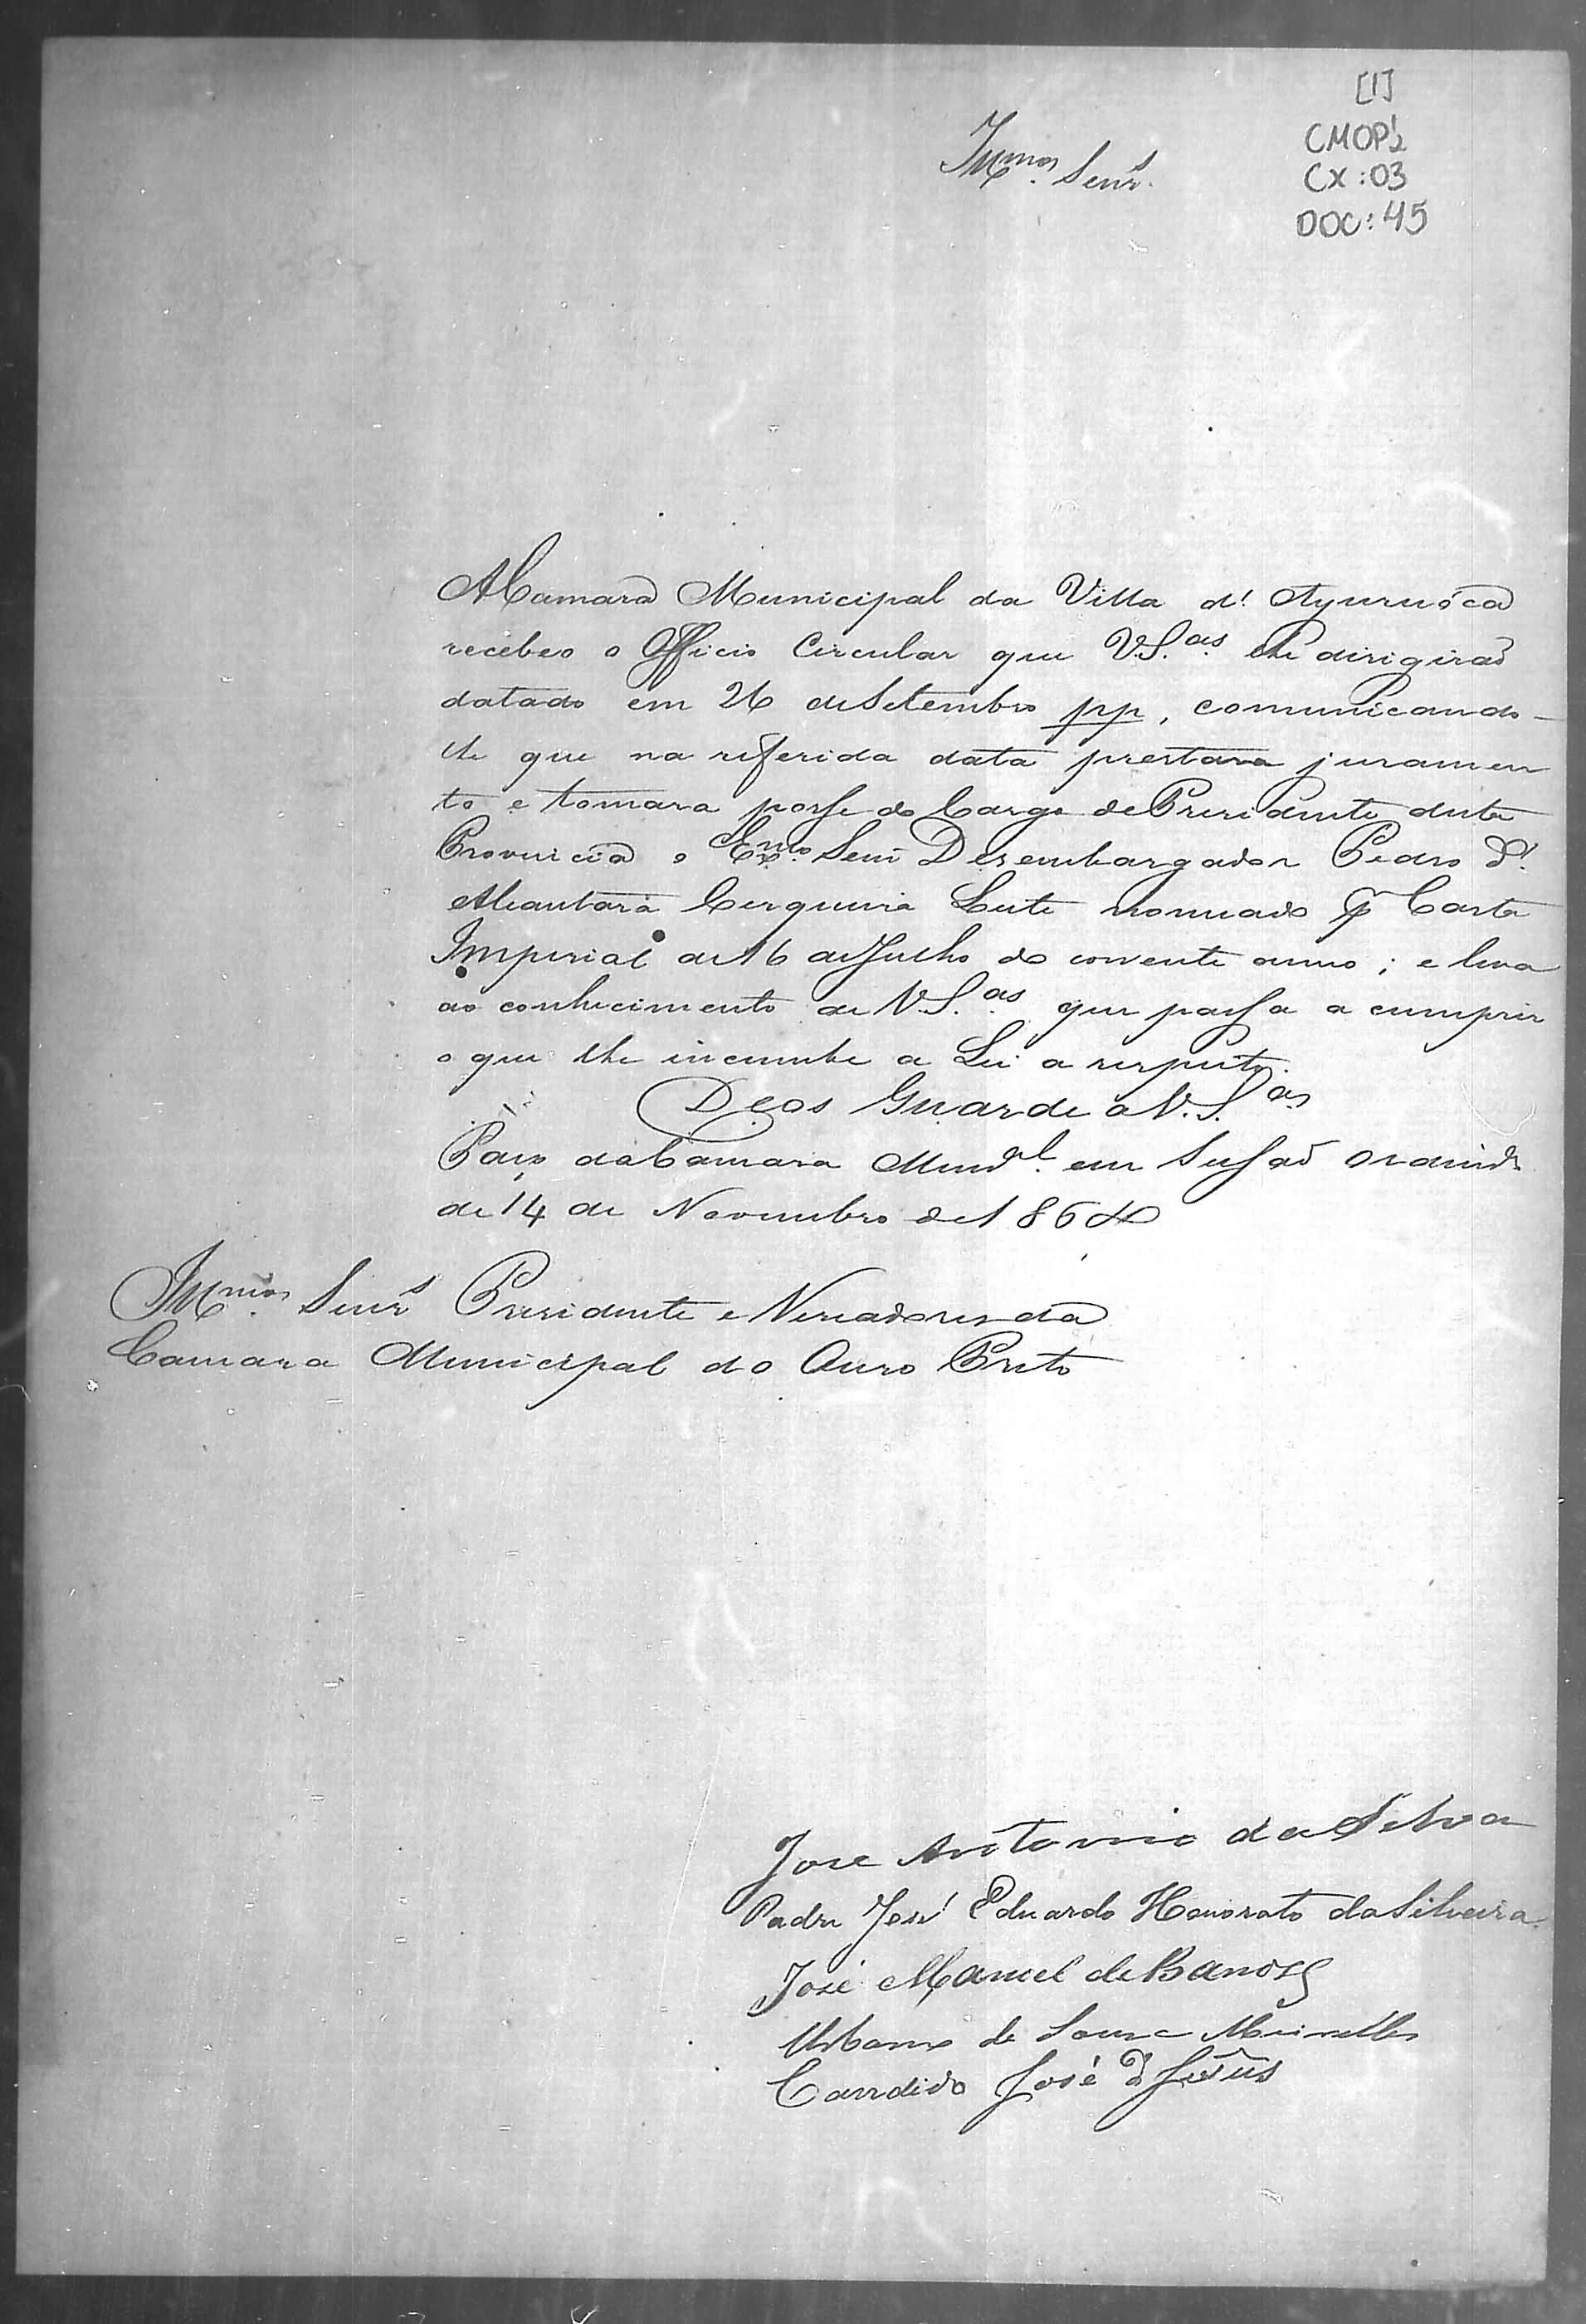 [1]
CMOP2
CX:03
DOC:45
Illmos. Senrs.
A Camara Municipal da Villa d'Ayuruóca
recebeo o Officio Circular que V.S.as lhe dirigiraõ
datado em 26 de Setembro pp, comunicando-
lhe que na referida data prestara juramen
to e tomara posse do Cargo de Presidente desta
Provincia o Exmo. Senr Desembargador Pedro d'
Alcantara Cerqueira Leite nomeado p Carta
Imperial de 16 de Julho do corrente anno; e leva
ao conhecimento de V.S.as que passa a cumprir
o que lhe incumbe a Lei a respeito.
Deos Guarde a V.S.as
Paço da Camara Munal. em Sessaõ Ordinra
de 14 de Novembro de 1864
Illmos. Senrs Presidente e Vereadores da
Camara Municipal do Ouro Preto
Jose Antonio da Silva
Padre José Eduardo Honorato da Silveira
José Manoel de Barros
Urbano de Souza Meirelles
Candido José de Jesus